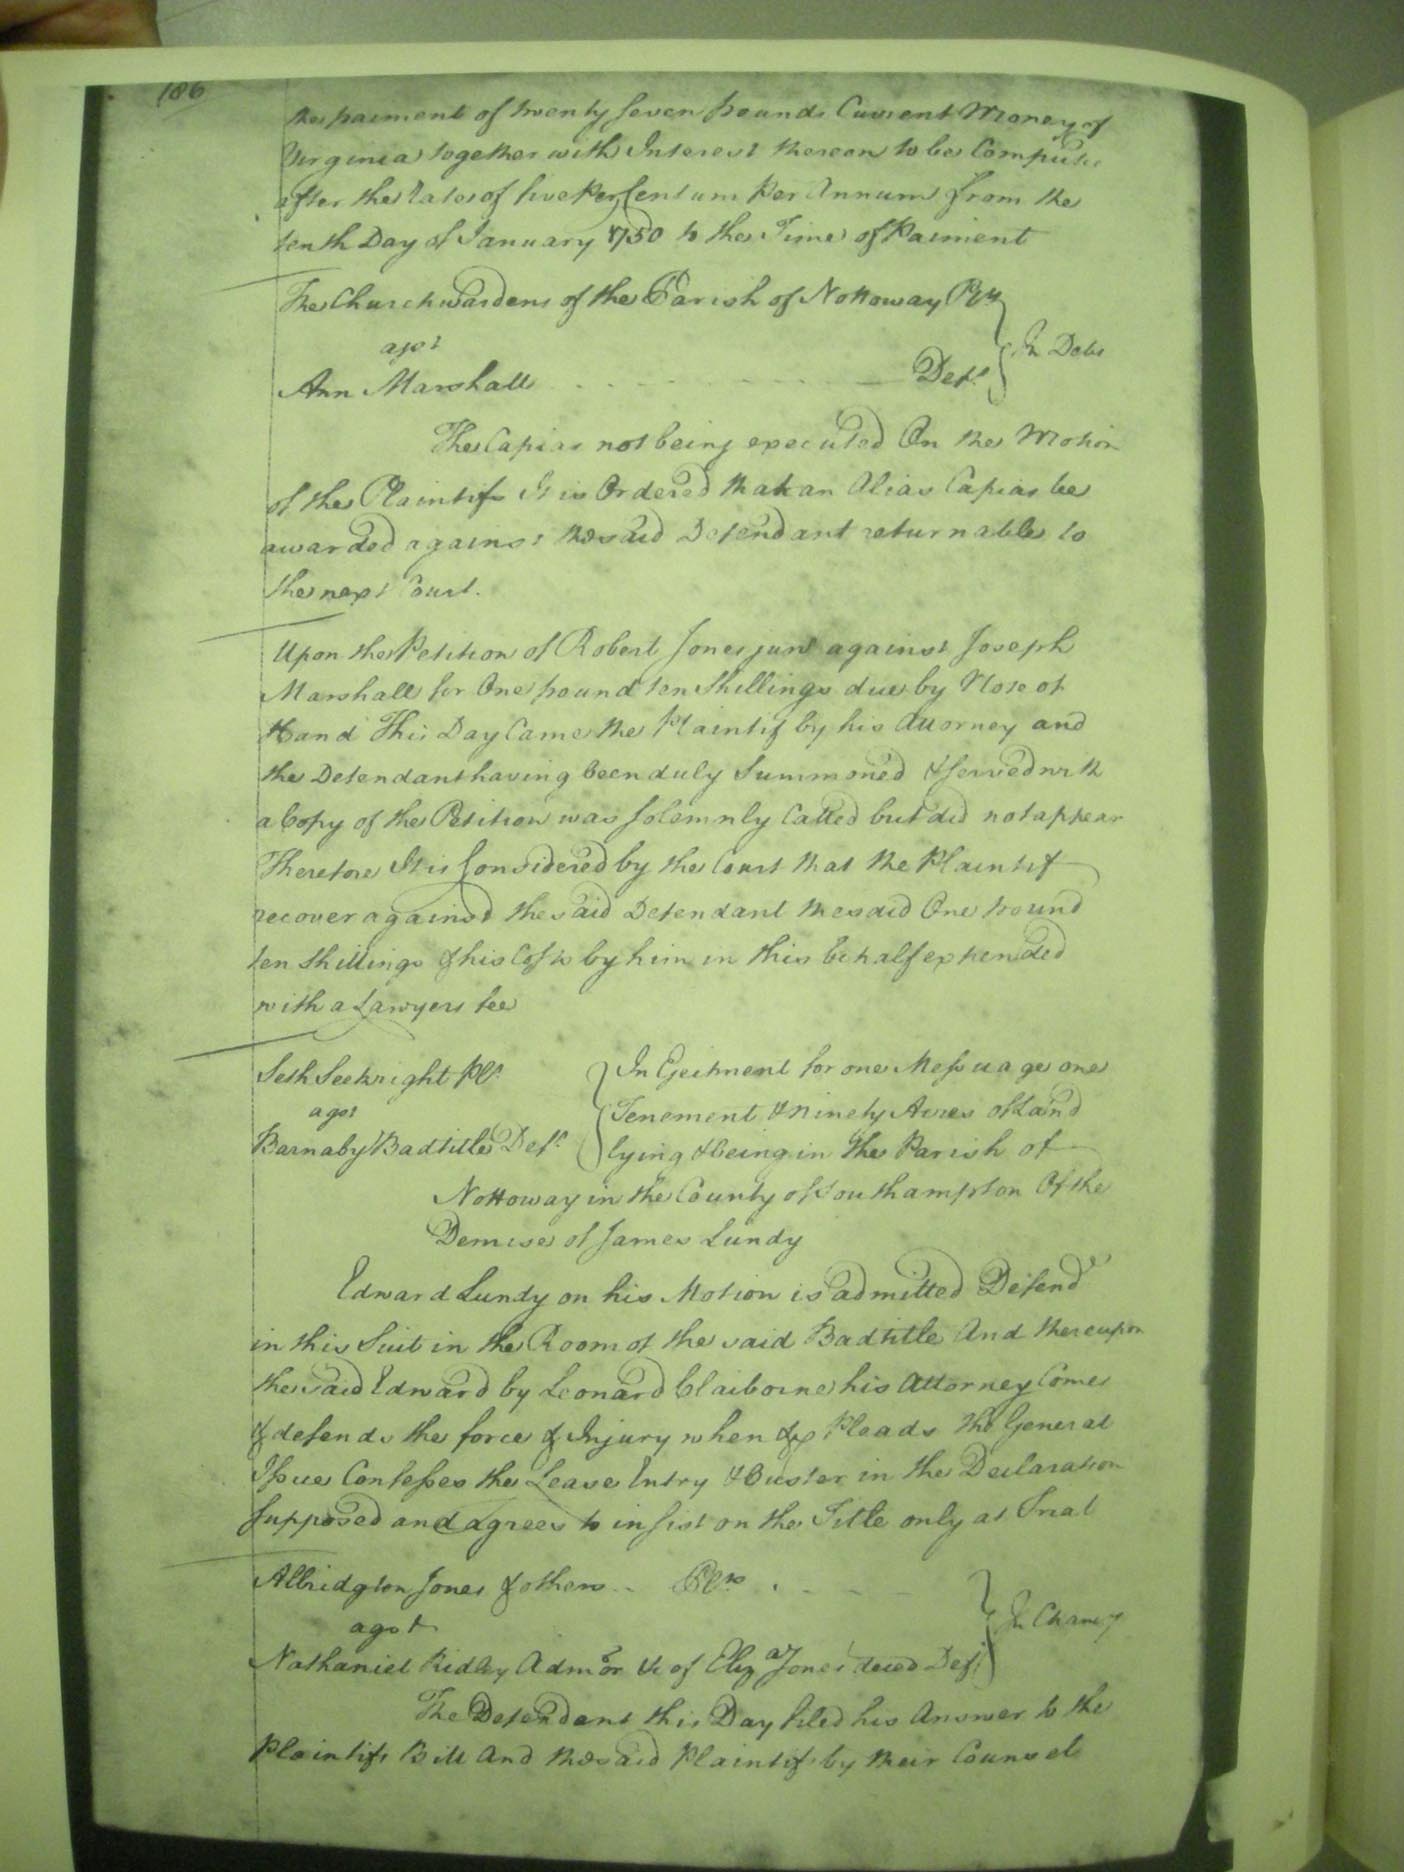 186
the paiment of twenty seven pounds Current Money of
Virginia together with Interest thereon to be Computed
after the rate of five per Centum per Annum from the
tenth Day of January 1750 to the Time of Paiment
The Churchwardens of the Parish of Nottoway Plts
agst
In Debt
Ann Marshall Deft.
The Capias not being executed On the Motion
of the Plaintifs It is Ordered that an Alias Capias be
awarded against the said Defendant returnable to
the next Court.
Upon the Petition of Robert Jones junr against Joseph
Marshall for One pound ten Shillings due by Note of
Hand This Day Came the Plaintif by his Attorney and
the Defendant having been duly Summoned & served with
a Copy of the Petition was solemnly Called but did not appear
Therefore It is Considered by the Court that the Plaintif
recover against the said Defendant the said One pound
ten shillings & his Costs by him in this behalf expended
with a Lawyers fee
Seth Seekright Plt.
In Ejectment for one Messuage one
agst
Tenement & Ninety Acres of Land
Barnaby Badtitle Deft.
lying & being in the Parish of
Nottoway in the County of Southampton Of the
Demise of James Lundy
Edward Lundy on his Motion is admitted Defendt
in this Suit in the Room of the said Badtitle And thereupon
the said Edward by Leonard Claiborne his Attorney Comes
& defends the force & Injury when &c Pleads the General
Issue Confesses the Lease Entry & Ouster in the Declaration
supposed and agrees to insist on the Title only at Trial
Albridgton Jones & others Plts
agst
In Chancy
Nathaniel Ridley Admor &c of Eliza Jones deced Deft
The Defendant this Day filed his Answer to the
Plaintifs Bill And the said Plaintifs by their Counsel